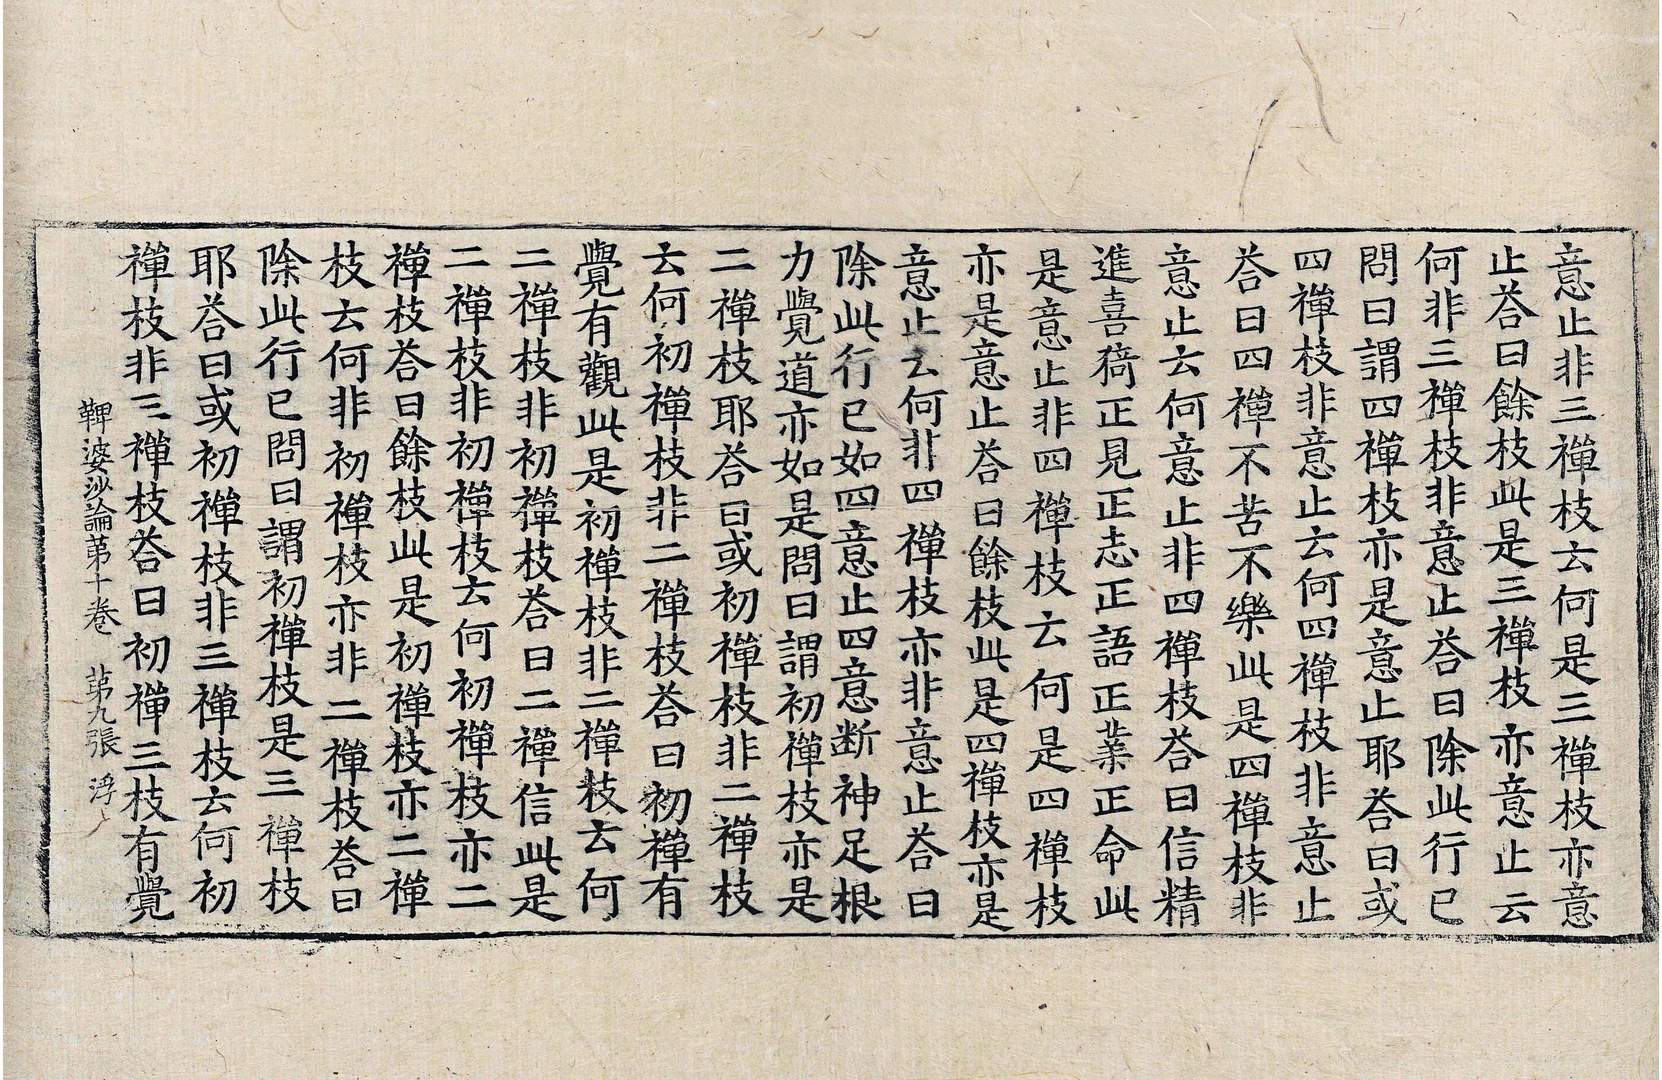 意止非三禪枝云何是三禪枝亦意
止荅曰餘枝此是三禪枝亦意止云
何非三禪枝非意止荅曰除此行已
問曰謂四禪枝亦是意止耶荅曰或
四禪枝非意止云何四禪枝非意止
荅曰四禪不苦不樂此是四禪枝非
意止云何意止非四禪枝荅曰信精
進喜猗正見正志正語正業正命此
是意止非四禪枝云何是四禪枝
亦是意止荅曰餘枝此是四禪枝亦是
意止云何非四禪枝亦非意止荅曰
除此行已如四意止四意断神足根
力覺道亦如是問曰謂初禪枝亦是
二禪枝耶荅曰或初禪枝非二禪枝
云何初禪枝非二禪枝荅曰初禪有
覺有觀此是初禪枝非二禪枝云何
二禪枝非初禪枝荅曰二禪信此是
二禪枝非初禪枝云何初禪枝亦二
禪枝荅曰餘枝此是初禪枝亦二禪
枝云何非初禪枝亦非二禪枝荅曰
除此行已問曰謂初禪枝是三禪枝
耶荅曰或初禪枝非三禪枝云何初
禪枝非三禪枝荅曰初禪三枝有覺
鞞婆沙論苐十卷 苐九張 浮